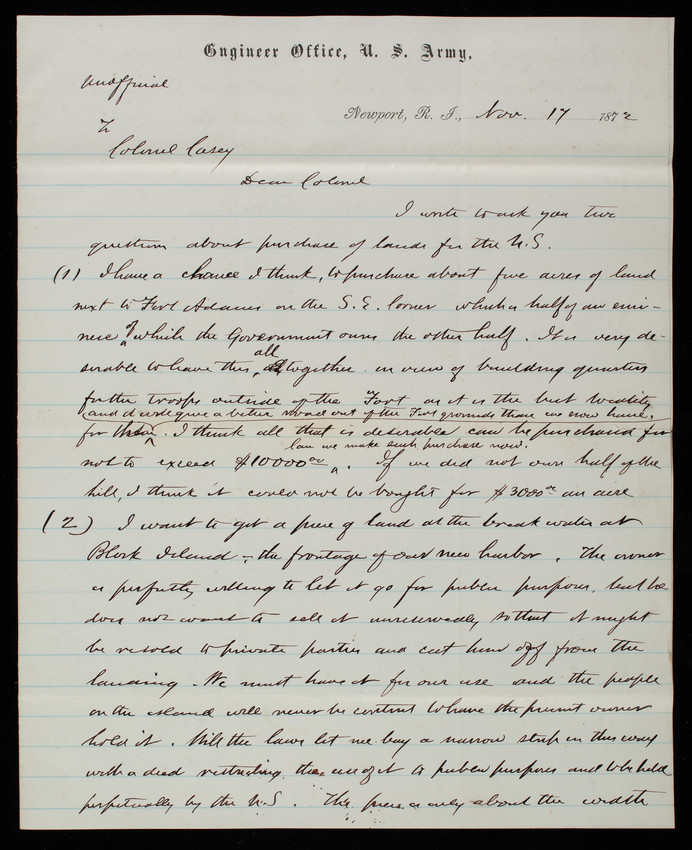 Engineer Office, U. S. Army,
Unofficial
Newport, R. I., Nov. 17 1872
To
Colonel Casey
Dear Colonel
I write to ask you two
questions about purchase of lands for the U.S.
(1) I have a chance I think, to purchase about five acres of land
next to Fort Adams on the S.E. corner which is half of an emi-
nence of which the Government owns the other half. It is very de-
sirable to have this all together in view of building quarters
for the troops outside of the Fort as it is the best locality
(and would give a better road out of the Fort grounds than we now have.
for them. I think all that is desirable can be purchased for
Can we make such purchase now.
not to exceed $10000.00. If we did not own half of the
hill, I think it could not be bought for $3000.00 an acre
(2) I want to get a piece of land at the breakwater at
Block Island - the frontage of our new harbor. The owner
is perfectly willing to let it go for public purposes, but he
does not want to sell it unreservedly so that it might
be resold to private parties and cut him off from the
landing. We must have it for our use and the people
on the island will never be content to have the present owner
hold it. Will the laws let me buy a narrow strip in this way
with a deed restricting the use of it to public purposes and to be held
perpetually by the U.S. This piece is only about the width